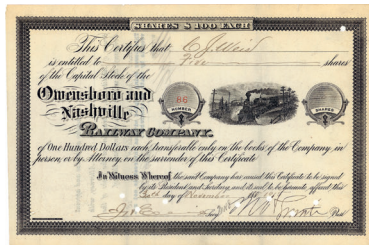 SHARES $100 EACH
This Certifies that C. J. Weir
is entitled to Five shares
of the Capital Stock of the
Owensboro and
Nashville
86
NUMBER
SHARES
RAILWAY COMPANY.
of One Hundred Dollars each, transferable only on the books of the Company in
person or by Attorney on the surrender of this Certificate
In Witness Whereof the said Company has caused this Certificate to be signed
by its President and Secretary, and its seal to be hereunto affixed this
day of November
Sec'y
Pres.